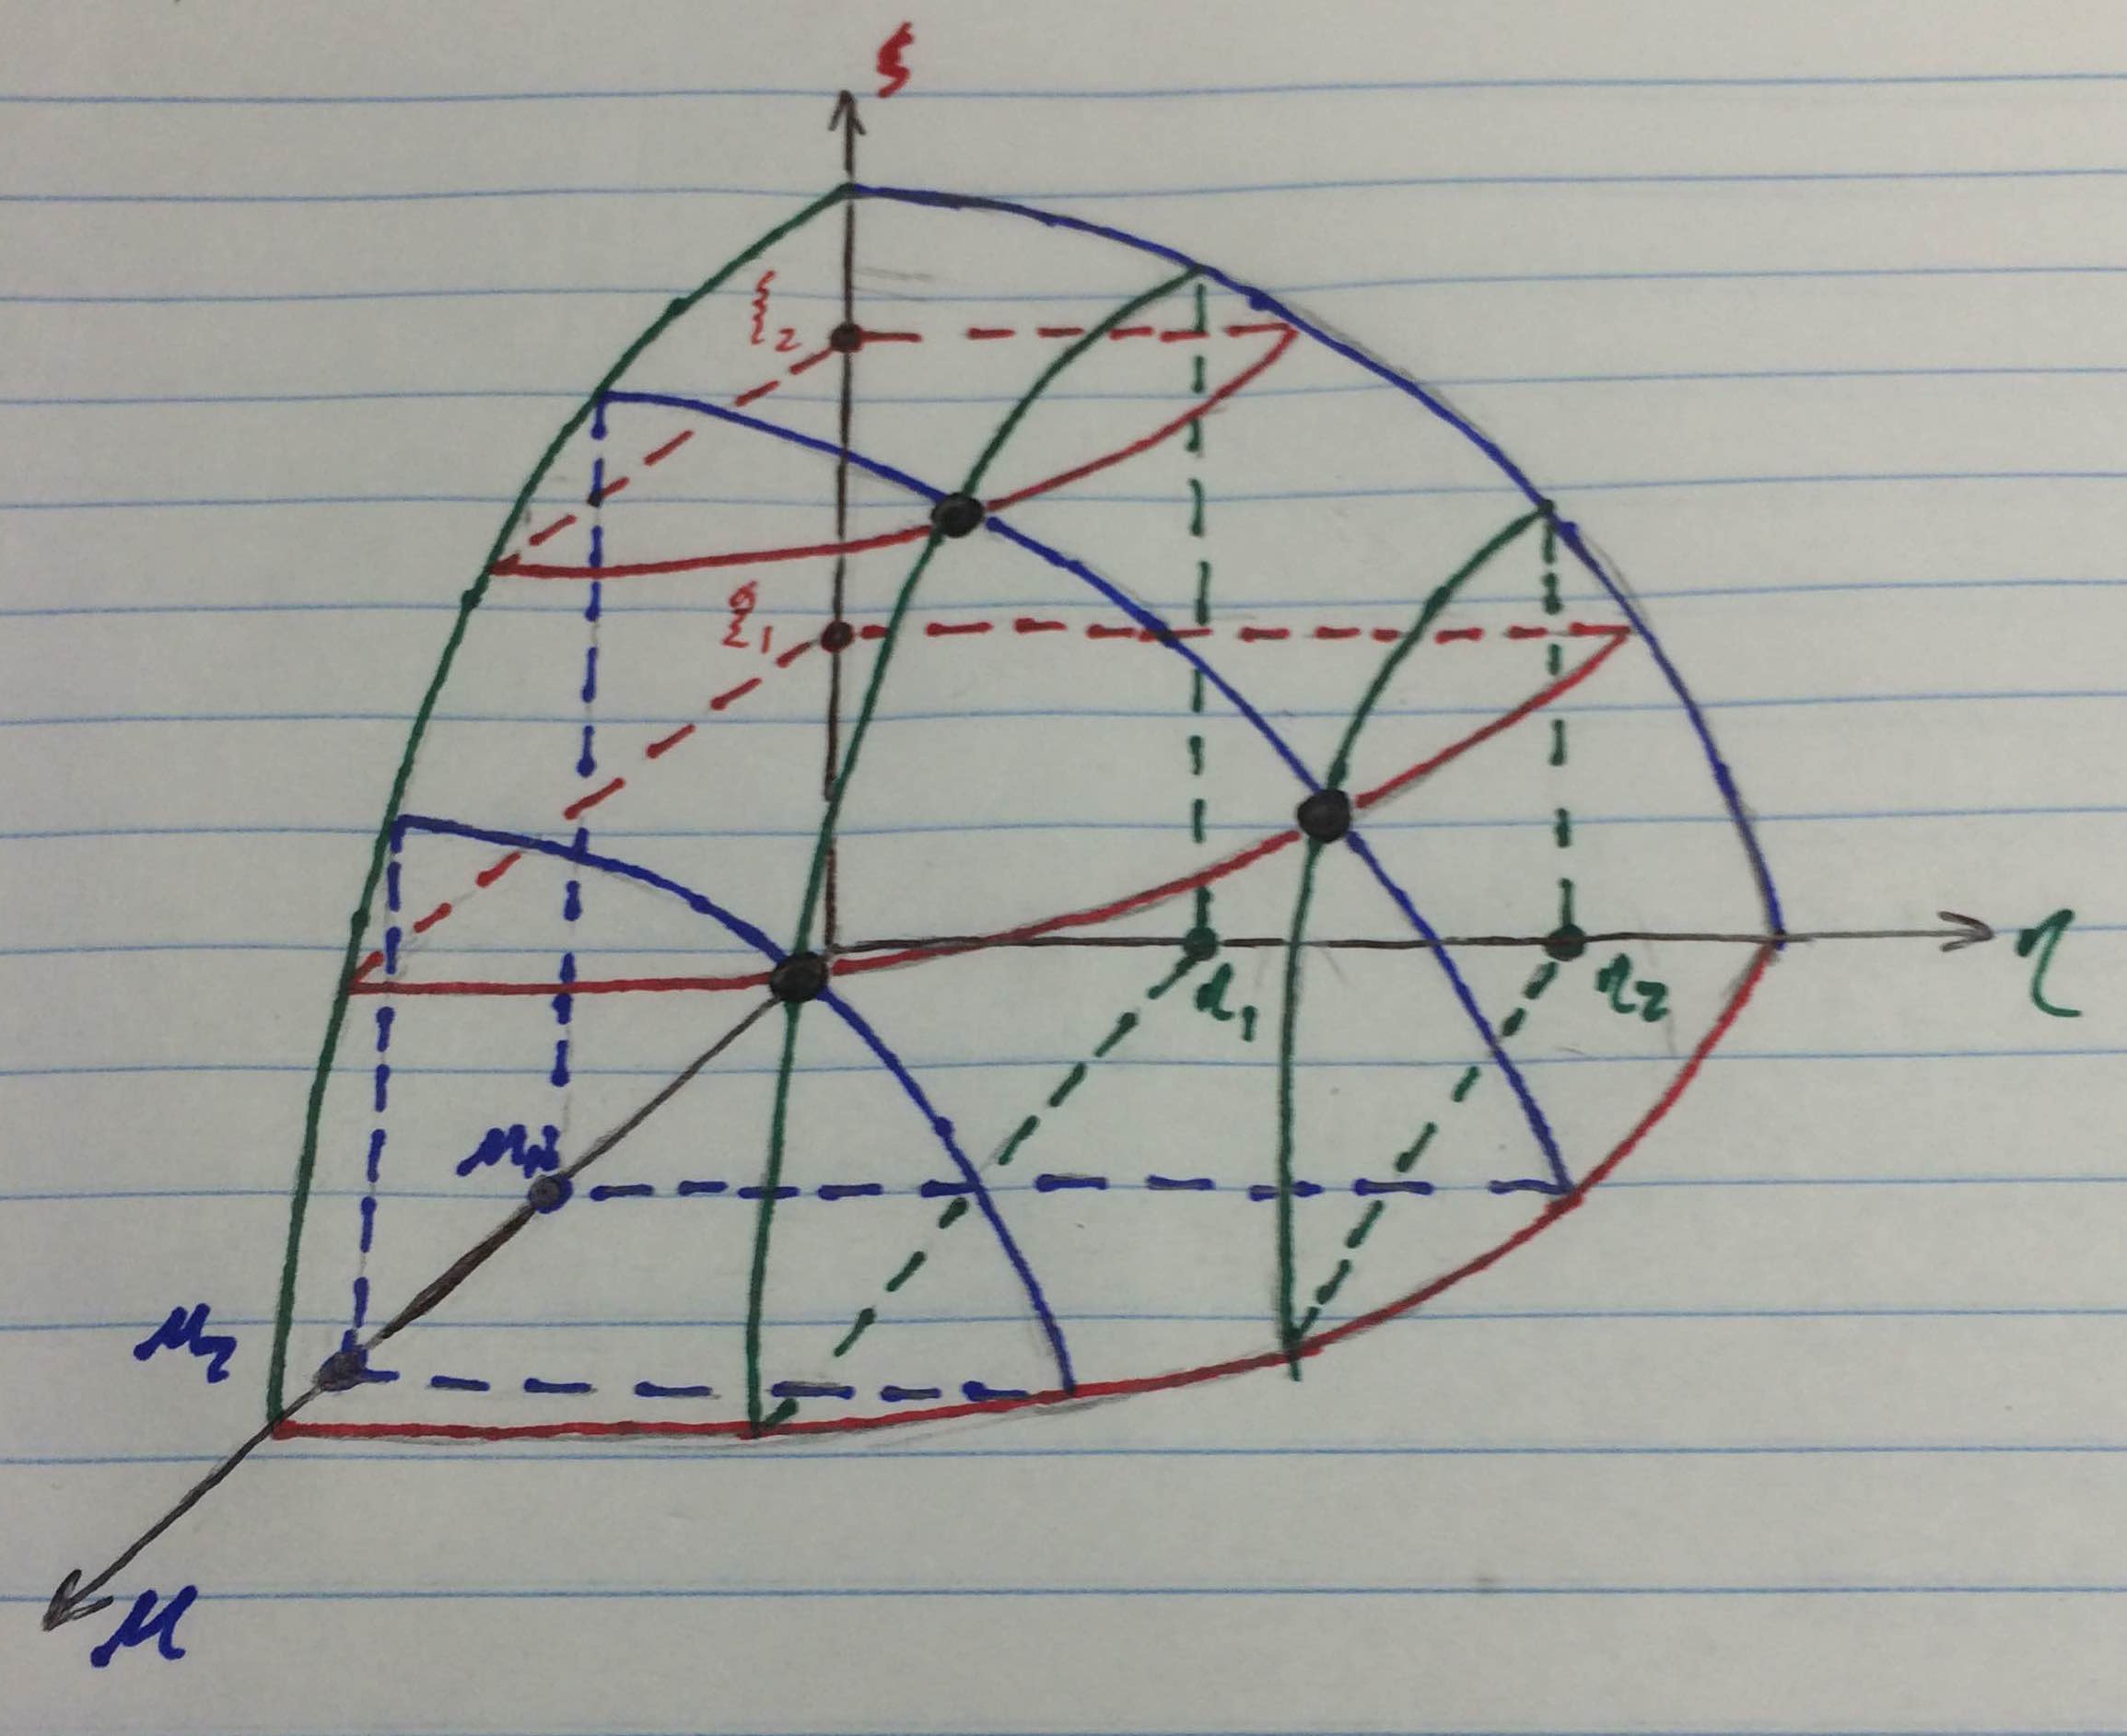 ξ
ξ₂
ξ₁
η
η₁
η₂
μ₂
μ